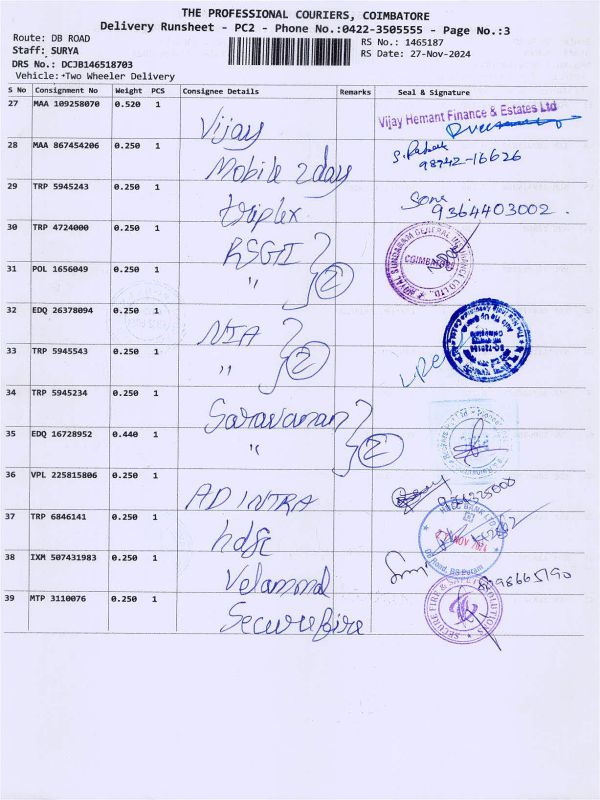 THE PROFESSIONAL COURIERS, COIMBATORE
Delivery Runsheet - PC2 - Phone No.:0422-3505555 - Page No.:3
Route: DB ROAD
RS No.: 1465187
Staff: SURYA
RS Date: 27-Nov-2024
DRS No.: DCJB146518703
Vehicle: Two Wheeler Delivery
S No Consignment No Weight PCS Consignee Details Remarks Seal & Signature
27 MAA 109258070 0.520 1 Vijay Vijay Hemant Finance & Estates Ltd
28 MAA 867454206 0.250 1 Mobile 2day 98742-16626
29 TRP 5945243 0.250 1 triplex 9364403002.
30 TRP 4724000 0.250 1 RSGI ROYAL SUNDARAM GENERAL INSURANCE CO LTD. COIMBATORE
31 POL 1656049 0.250 1 " 2
32 EDQ 26378094 0.250 1 NIA
33 TRP 5945543 0.250 1 " 2
34 TRP 5945234 0.250 1 Saravanan
35 EDQ 16728952 0.440 1 " 2
36 VPL 225815806 0.250 1 AD INTRA
37 TRP 6846141 0.250 1 hdfc HDFC BANK LTD NOV 2024 DB Road, RS Puram
38 IXM 507431983 0.250 1 Velammal
39 MTP 3110076 0.250 1 Securefire SECURE FIRE & SAFETY SOLUTIONS